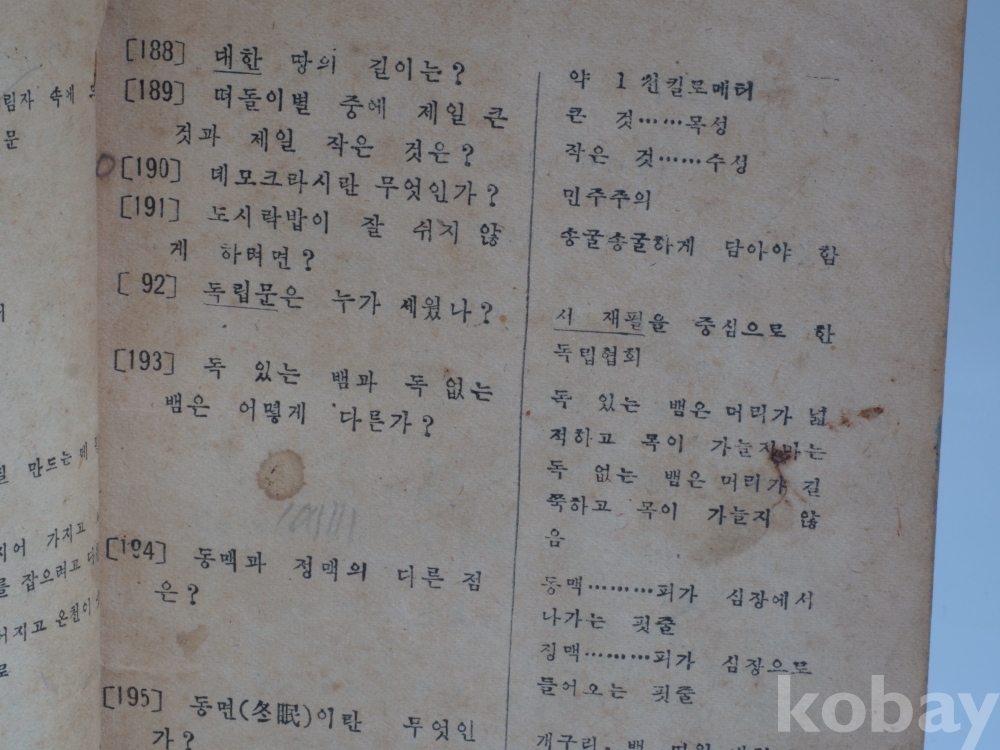 림자 속에
문
만드는데
지어 가지고
를 잡으려고
어지고 온천이
로
[188] 대한 땅의 길이는?
[189] 떠돌이별 중에 제일 큰
것과 제일 작은 것은?
[190] 데모크라시란 무엇인가?
[191] 도시락밥이 잘 쉬지 않
게 하려면?
[ 92] 독립문은 누가 세웠나?
[193] 독 있는 뱀과 독 없는
뱀은 어떻게 다른가?
[194] 동맥과 정맥의 다른 점
은?
[195] 동면(冬眠)이란 무엇인
가?
약 1천킬로메터
큰 것……목성
작은 것……수성
민주주의
송굴송굴하게 담아야 함
서 재필을 중심으로 한
독립협회
독 있는 뱀은 머리가 넓
적하고 목이 가늘지마는
독 없는 뱀은 머리가 길
쭉하고 목이 가늘지 않
음
동맥………피가 심장에서
나가는 핏줄
정맥………피가 심장으로
들어오는 핏줄
개구리, 뱀,
kobay